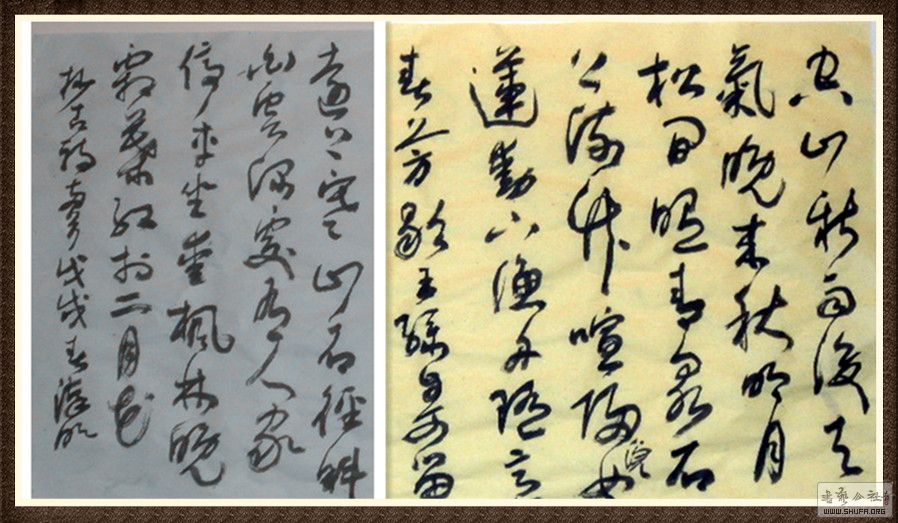 空山新雨後天
氣晚來秋明月
松間照清泉石
上流竹喧歸浣女
蓮動下漁舟隨意
春芳歇王孫自可留
遠上寒山石徑斜
白雲深處有人家
停車坐愛楓林晚
霜葉紅於二月花
抄古詩戊戌春
書藝公社
WWW.SHUFA.ORG